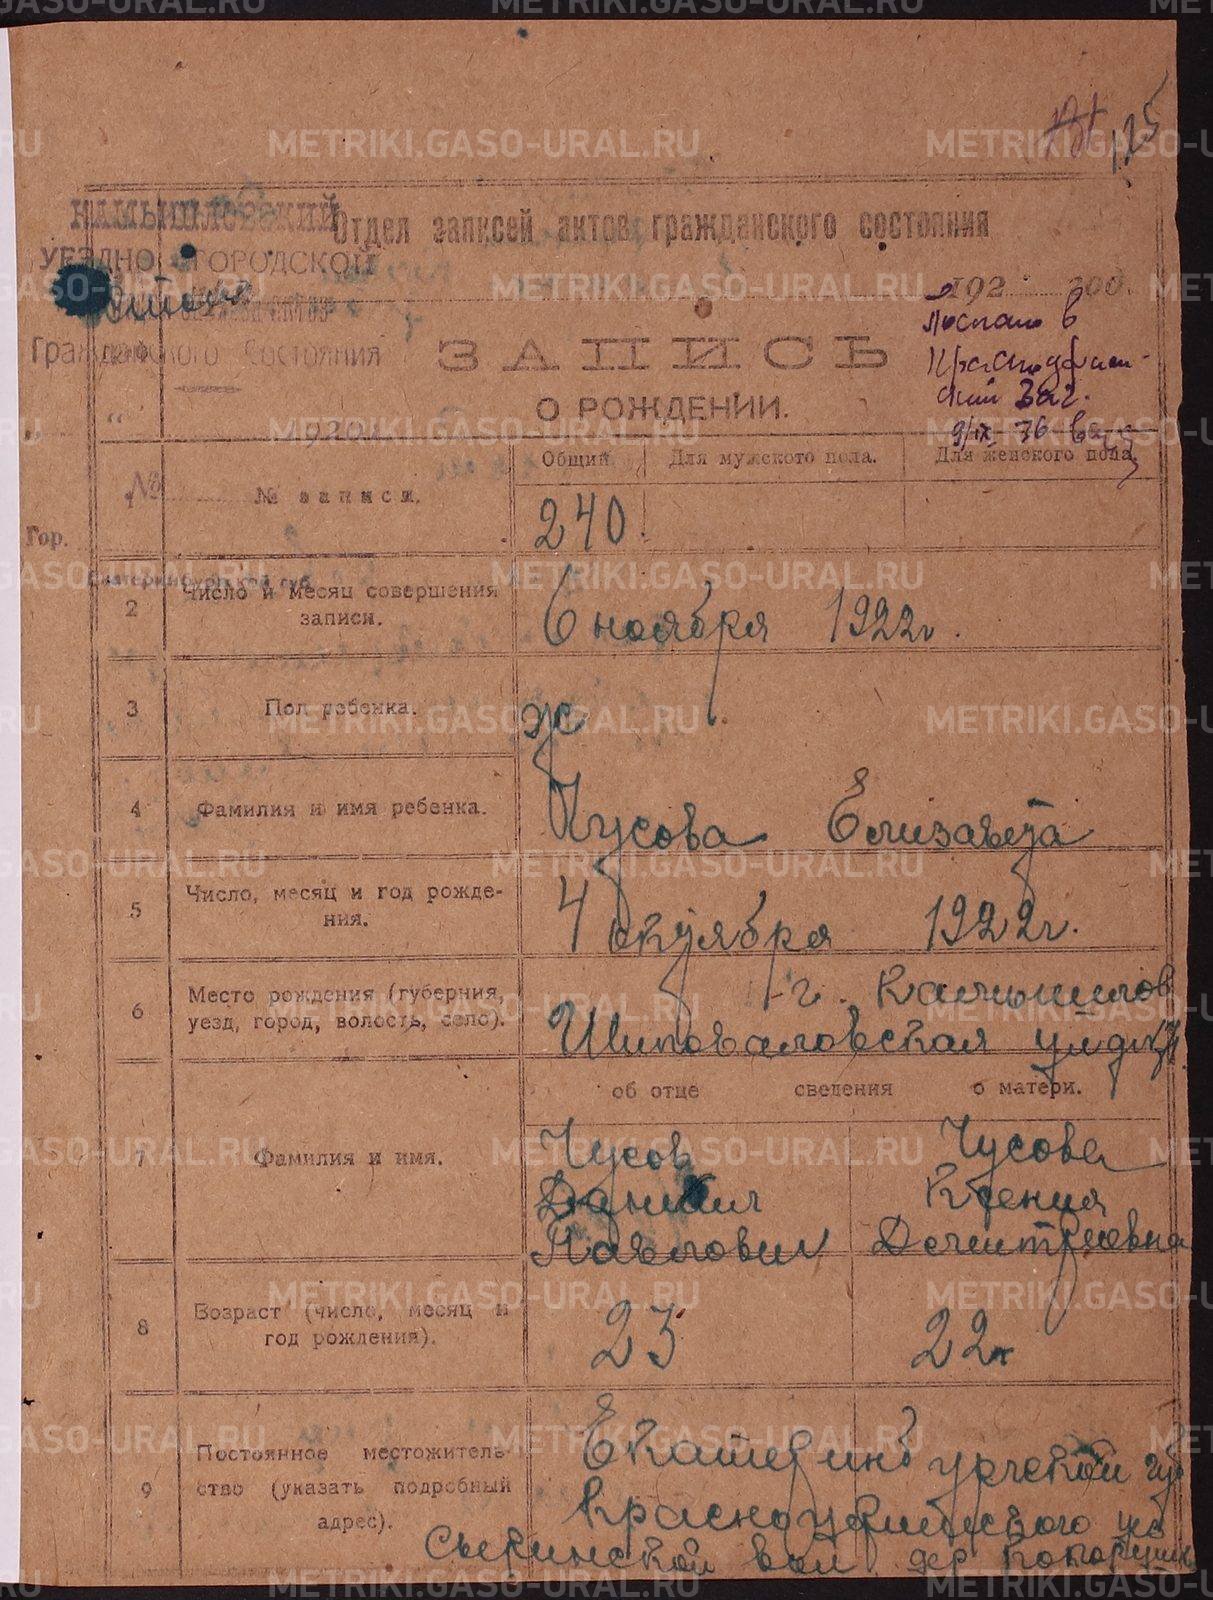 125
КАМЫШЛОВСКИЙ
УЕЗДНО ГОРОДСКОЙ
Гражданского Состояния
Отдел записей актов гражданского состояния
192 года.
Послано в
Красноуфим-
ский Заг.
9/IX 76
ЗАПИСЬ
О РОЖДЕНИИ.
Общий
Для мужского пола.
Для женского пола.
№
№ записи.
240.
Гор.
Екатеринбургской губ.
2
Число и месяц совершения
записи.
6 ноября 1922 г.
3
Пол ребенка.
ж
4
Фамилия и имя ребенка.
Чусова Елизавета
5
Число, месяц и год рожде-
ния.
4 октября 1922 г.
6
Место рождения (губерния,
уезд, город, волость, село).
г. Камышлов
Шиповаловская ул д
об отце сведения о матери.
7
Фамилия и имя.
Чусов
Даниил
Павлович
Чусова
Ксения
Дмитриевна
8
Возраст (число, месяц и
год рождения).
23
22
9
Постоянное местожитель-
ство (указать подробный
адрес).
Екатеринбургской губ
Красноуфимского уез
вол дер
METRIKI.GASO-URAL.RU